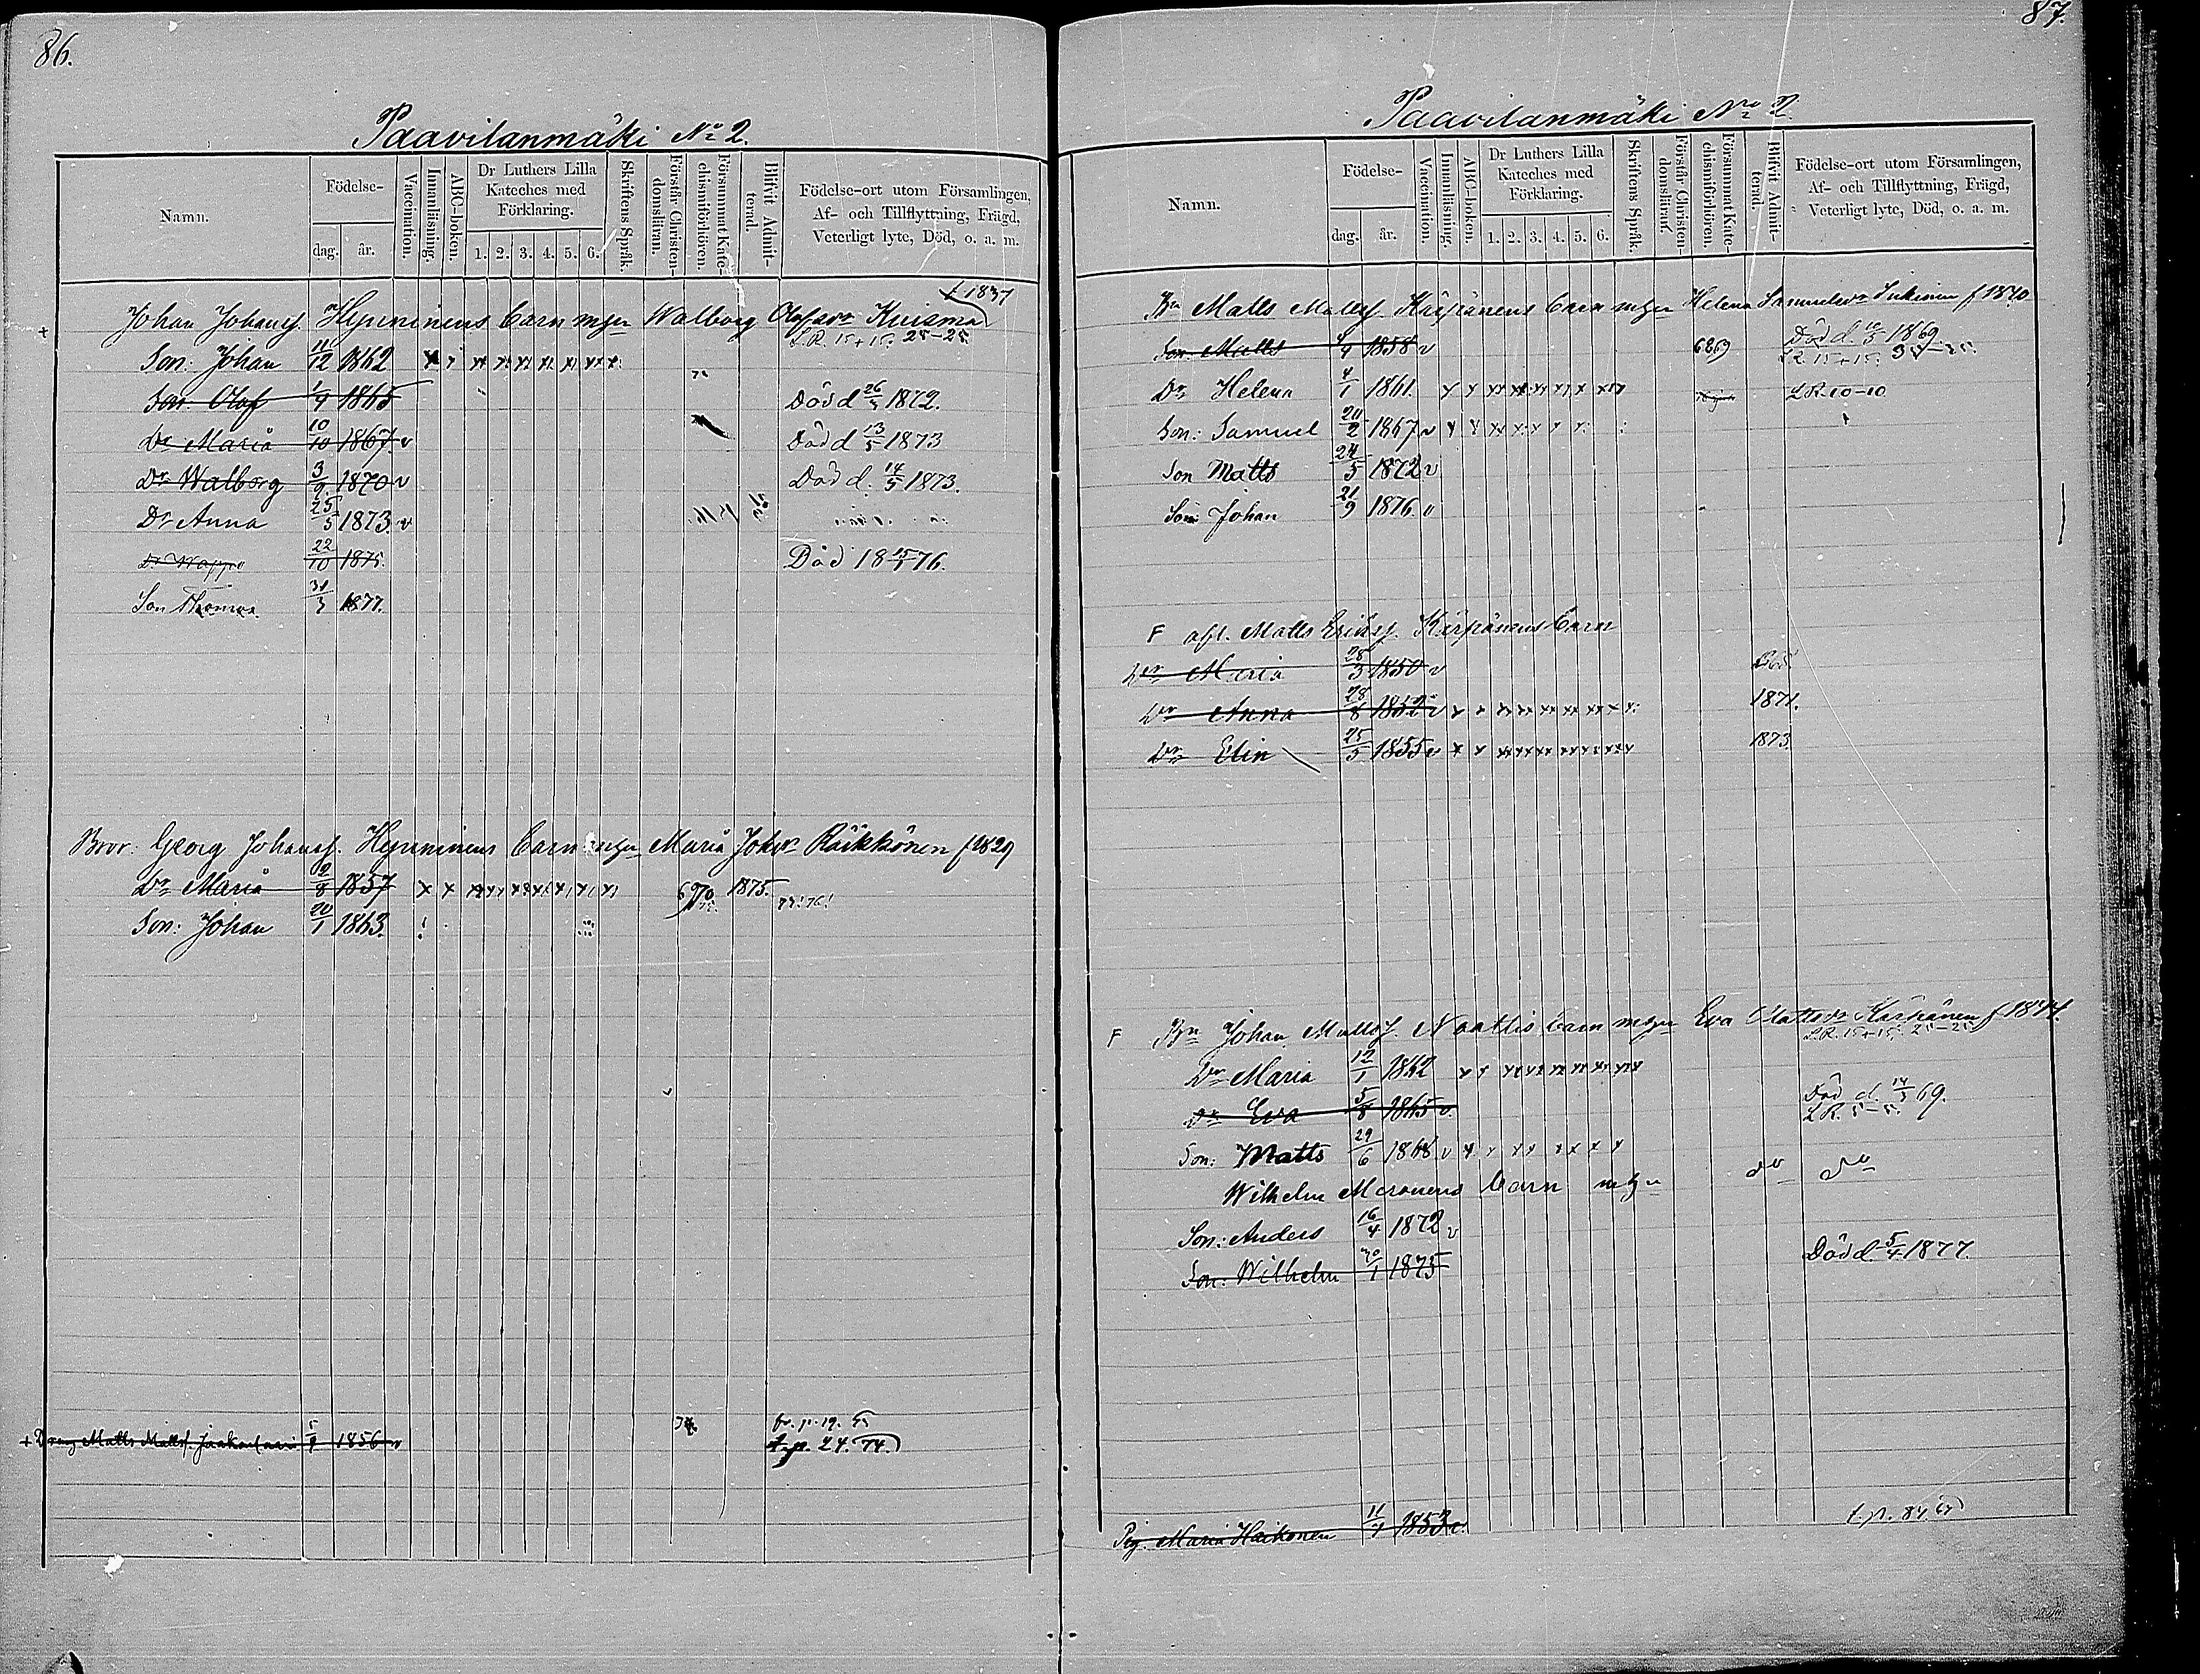 86.
Paavilanmäki No 2.
Namn.
Födelse-
dag. år.
Vaccination.
Innanläsning.
ABC-boken.
Dr Luthers Lilla Kateches med Förklaring.
1. 2. 3. 4. 5. 6.
Skriftens Språk.
Förstår Christendomsläran.
Försummat Katechismiförhören.
Blifvit Admitterad.
Födelse-ort utom Församlingen,
Af- och Tillflyttning, Frägd,
Veterligt lyte, Död, o. a. m.
Johan Johansf. Hyninens barn mger Walborg Olofsdr Kuisma f 1837
L.R. 15+15. 25-25
Son: Johan 11/12 1862
Son. Olof 1/4 1865 Död d 26/3 1872.
Dr Maria 10/10 1867. v Död d 13/5 1873
Dr Walborg 3/9 1870 v Död d. 14/5 1873.
Dr Anna 25/5 1873. v
22/10 1875. Död 18 15/1 76.
Son Thomas. 31/3 1877.
Bror. Georg Johansf. Hyninens barn mger Maria Johdr Räikkönen f 1829
Dr Maria /8 1857 1875.
Son: Johan 20/1 1863.
+ Dräng Matts Mattsf. 1856 v fr. p. 19.
t. p. 24. 74.
87.
Paavilanmäki No 2.
Namn.
Födelse-
dag. år.
Vaccination.
Innanläsning.
ABC-boken.
Dr Luthers Lilla Kateches med Förklaring.
1. 2. 3. 4. 5. 6.
Skriftens Språk.
Förstår Christendomsläran.
Försummat Katechismiförhören.
Blifvit Admitterad.
Födelse-ort utom Församlingen,
Af- och Tillflyttning, Frägd,
Veterligt lyte, Död, o. a. m.
Bn Matts Mattsf. Kärpänens barn mger Helena Samuelsdr f 1840
Son Matts 1858 v 6869 Död d. 10/3 1869
L.R. 15+15.
Dr Helena 4/1 1861. L.R. 10-10
Son: Samuel 20/2 1867 v
Son Matts 24/5 1872 v
Son Johan 21/9 1876 v
F afl. Matts Eriksf. Kärpänens barn
Dr Maria 28/3 1850 v
Dr Anna 28/8 1852 v 1871.
Dr Elin 25/3 1855 v 1873.
F Bn Johan Mattsf. Naatlis barn mger Eva Mattsdr Kärpänen f 1844.
L.R. 15+15; 25-25
Dr Maria 12/1 1862
Dr Eva 5/8 1865 v. Död d. 14/3 69.
L.R. 5-5.
Son: Matts 29/6 1868 v
Wilhelm Moronens barn mger do do
Son: Anders 16/4 1872 v
Son: Wilhelm 30/1 1875 Död d. 5/4 1877.
Pig. Maria Haikonen 11/4 1853 v. t. p. 84